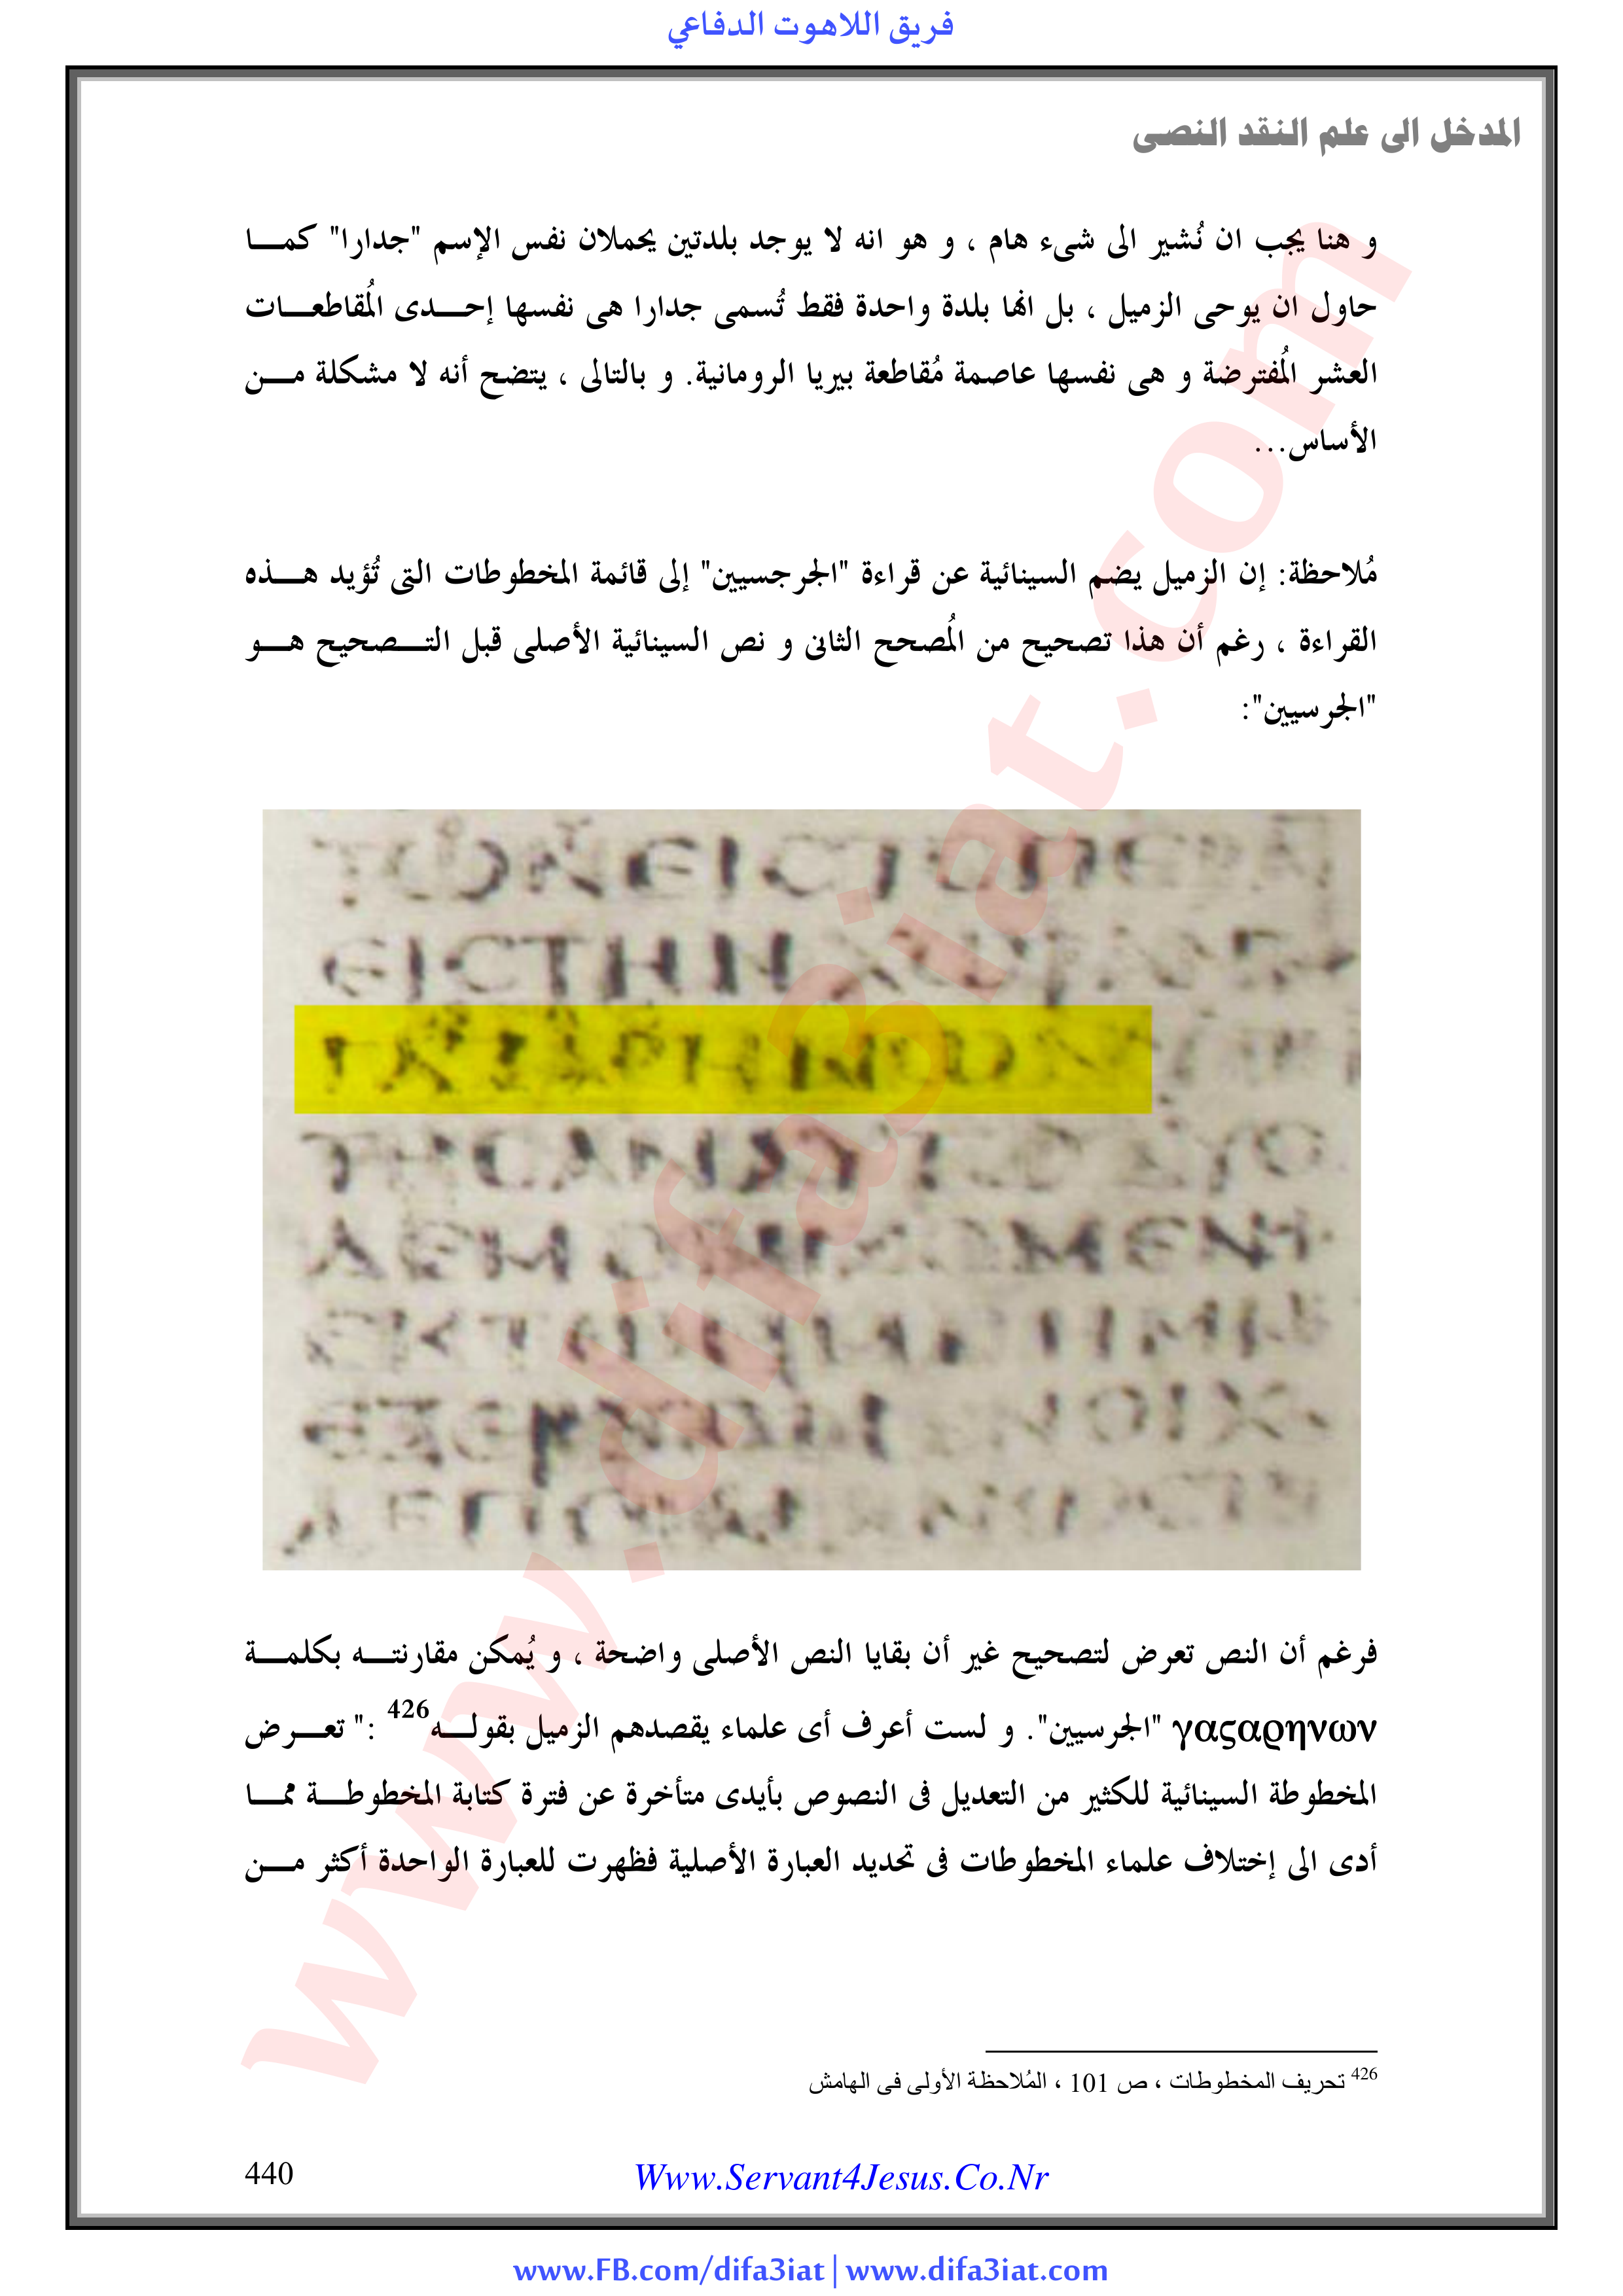 فريق اللاهوت الدفاعي
المدخل الى علم النقد النصى
و هنا يجب ان نُشير الى شىء هام ، و هو انه لا يوجد بلدتين يحملان نفس الإسم "جدارا" كمـــا
حاول ان يوحى الزميل ، بل انها بلدة واحدة فقط تُسمى جدارا هى نفسها إحـــدى المُقاطعـــات
العشر المُفترضة و هى نفسها عاصمة مُقاطعة بيريا الرومانية. و بالتالى ، يتضح أنه لا مشكلة مـــن
الأساس...
مُلاحظة: إن الزميل يضم السينائية عن قراءة "الجرجسيين" إلى قائمة المخطوطات التى تُؤيد هـــذه
القراءة ، رغم أن هذا تصحيح من المُصحح الثانى و نص السينائية الأصلى قبل التـــصحيح هـــو
"الجرسيين":
ΤΩΝΕΙCΤΟΠΕΡΑ
ΕΙCΤΗΝ ΧΩΡΑΝ
فرغم أن النص تعرض لتصحيح غير أن بقايا النص الأصلى واضحة ، و يُمكن مقارنتـــه بكلمـــة
γαςαρηνων "الجرسيين". و لست أعرف أى علماء يقصدهم الزميل بقولـــه426 :" تعـــرض
المخطوطة السينائية للكثير من التعديل فى النصوص بأيدى متأخرة عن فترة كتابة المخطوطـــة ممـــا
أدى الى إختلاف علماء المخطوطات فى تحديد العبارة الأصلية فظهرت للعبارة الواحدة أكثر مـــن
426 تحريف المخطوطات ، ص 101 ، المُلاحظة الأولى فى الهامش
440
Www.Servant4Jesus.Co.Nr
www.FB.com/difa3iat | www.difa3iat.com
www.difa3iat.com